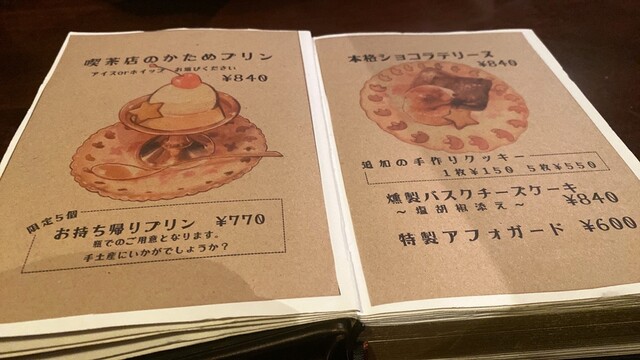 喫茶店のかためプリン
アイスorホイップ お選びください
¥840
限定5個
お持ち帰りプリン ¥770
瓶でのご用意となります。
手土産にいかがでしょうか？
本格ショコラテリーヌ
¥840
追加の手作りクッキー
1枚¥150 5枚¥550
燻製バスクチーズケーキ
～塩胡椒添え～ ¥840
特製アフォガード ¥600